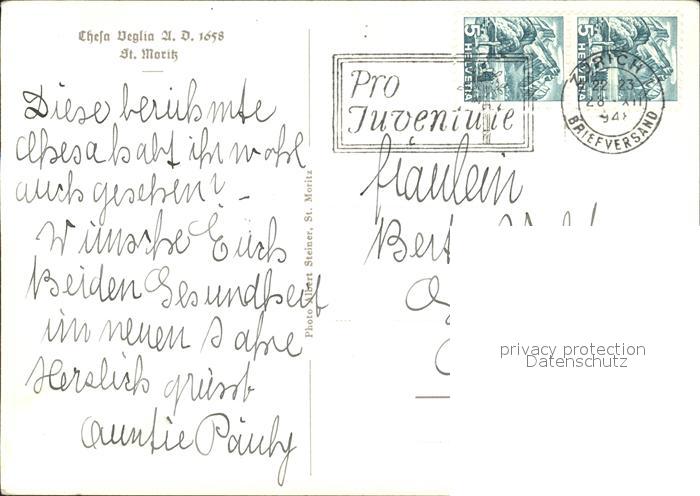 Chesa Veglia A. D. 1658
St. Moritz
Diese berühmte
Chesa habt ihr wohl
auch gesehen? –
Wünsche Euch
Beiden Gesundheit
im neuen Jahre
Herzlich grüsst
Auntie Pauly
Photo Albert Steiner, St. Moritz
5 HELVETIA
5 HELVETIA
Pro
Juventute
ZÜRICH
22-23
28 XII
BRIEFVERSAND
Fräulein
privacy protection
Datenschutz